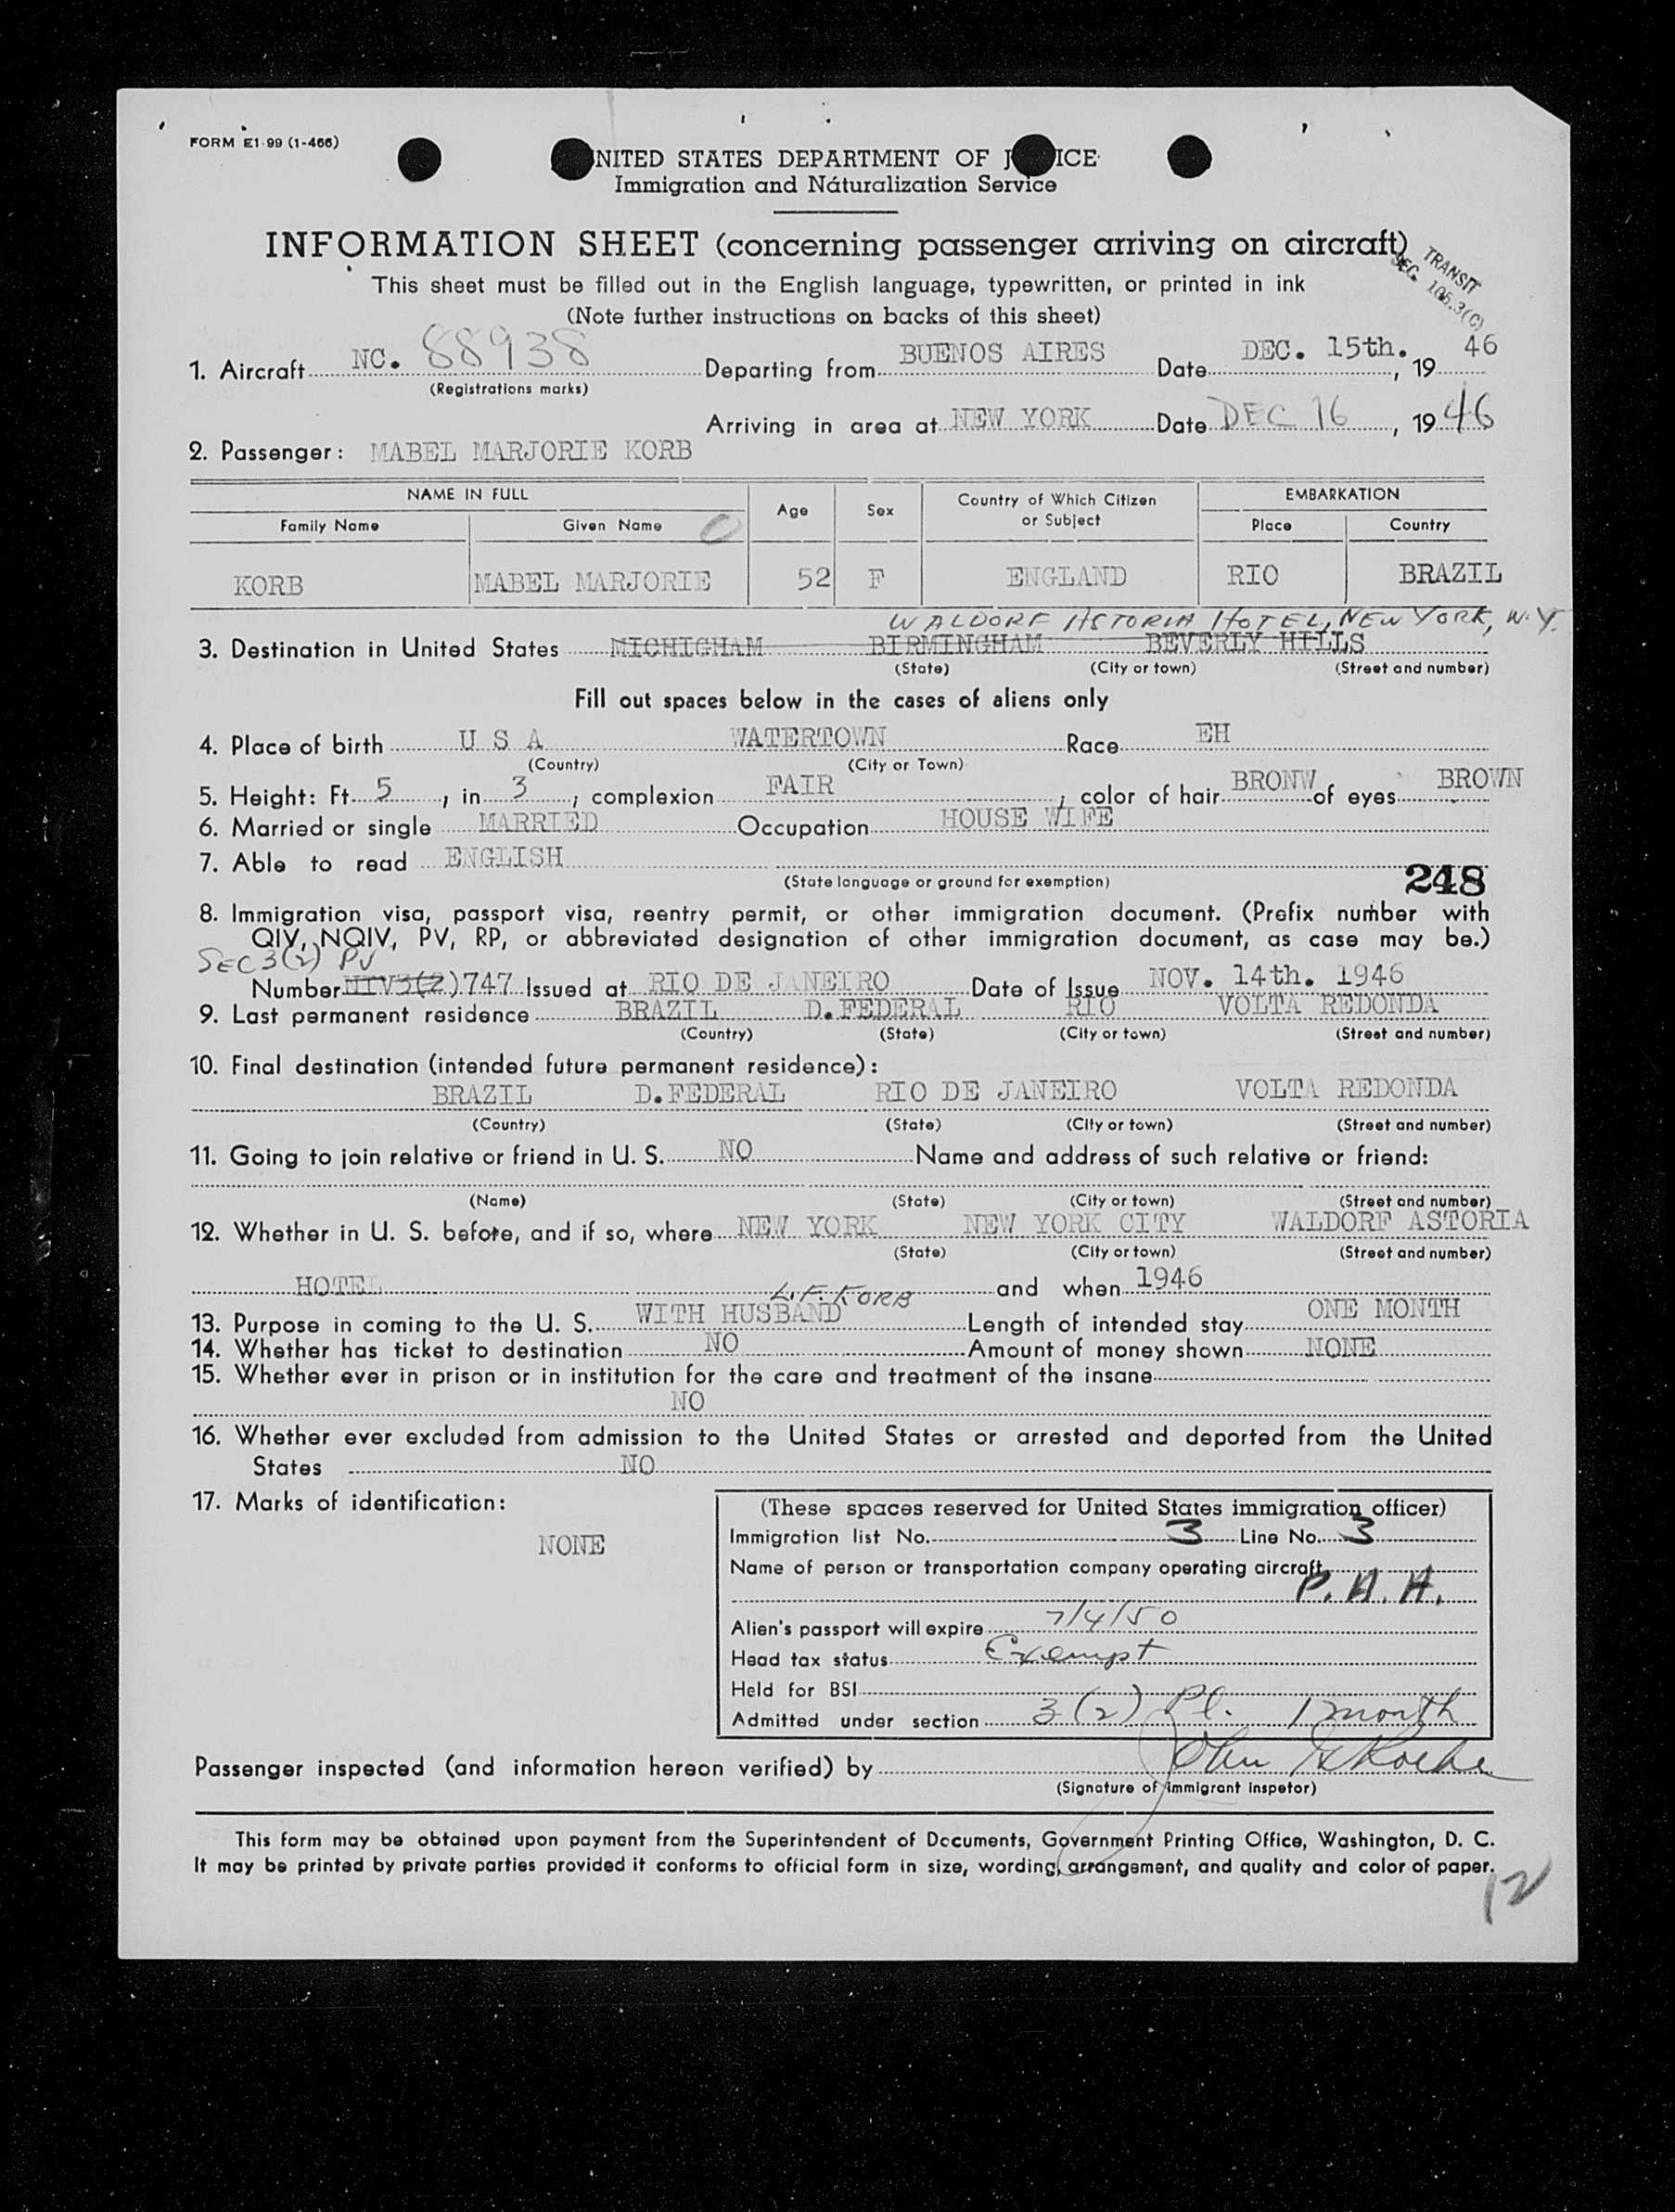 FORM E1-99 (1-466)
NITED STATES DEPARTMENT OF J ICE
Immigration and Naturalization Service
INFORMATION SHEET (concerning passenger arriving on aircraft)
TRANSIT
SEC. 106.3(C)
This sheet must be filled out in the English language, typewritten, or printed in ink
(Note further instructions on backs of this sheet)
1. Aircraft NC. 88938 Departing from BUENOS AIRES Date DEC. 15th., 19 46
(Registrations marks)
Arriving in area at NEW YORK Date DEC 16, 19 46
2. Passenger: MABEL MARJORIE KORB
NAME IN FULL Age Sex Country of Which Citizen or Subject EMBARKATION
Family Name Given Name Place Country
KORB MABEL MARJORIE 52 F ENGLAND RIO BRAZIL
WALDORF ASTORIA HOTEL, NEW YORK, N.Y.
3. Destination in United States MICHIGHAM BIRMINGHAM BEVERLY HILLS
(State) (City or town) (Street and number)
Fill out spaces below in the cases of aliens only
4. Place of birth U S A WATERTOWN Race EH
(Country) (City or Town)
5. Height: Ft. 5, in. 3; complexion FAIR; color of hair BRONW of eyes BROWN
6. Married or single MARRIED Occupation HOUSE WIFE
7. Able to read ENGLISH
(State language or ground for exemption)
248
8. Immigration visa, passport visa, reentry permit, or other immigration document. (Prefix number with
QIV, NQIV, PV, RP, or abbreviated designation of other immigration document, as case may be.)
SEC 3(2) PV
Number NIV3(2)747 Issued at RIO DE JANEIRO Date of Issue NOV. 14th. 1946
9. Last permanent residence BRAZIL D.FEDERAL RIO VOLTA REDONDA
(Country) (State) (City or town) (Street and number)
10. Final destination (intended future permanent residence):
BRAZIL D.FEDERAL RIO DE JANEIRO VOLTA REDONDA
(Country) (State) (City or town) (Street and number)
11. Going to join relative or friend in U. S. NO Name and address of such relative or friend:
(Name) (State) (City or town) (Street and number)
12. Whether in U. S. before, and if so, where NEW YORK NEW YORK CITY WALDORF ASTORIA
(State) (City or town) (Street and number)
HOTEL and when 1946
L.F. KORB
13. Purpose in coming to the U. S. WITH HUSBAND Length of intended stay ONE MONTH
14. Whether has ticket to destination NO Amount of money shown NONE
15. Whether ever in prison or in institution for the care and treatment of the insane
NO
16. Whether ever excluded from admission to the United States or arrested and deported from the United
States NO
17. Marks of identification:
NONE
(These spaces reserved for United States immigration officer)
Immigration list No. 3 Line No. 3
Name of person or transportation company operating aircraft
P.A.A.
Alien's passport will expire 7/4/50
Head tax status Exempt
Held for BSI
Admitted under section 3(2) Pl. 1 month
Passenger inspected (and information hereon verified) by John
(Signature of Immigrant Inspetor)
This form may be obtained upon payment from the Superintendent of Documents, Government Printing Office, Washington, D. C.
It may be printed by private parties provided it conforms to official form in size, wording, arrangement, and quality and color of paper.
12